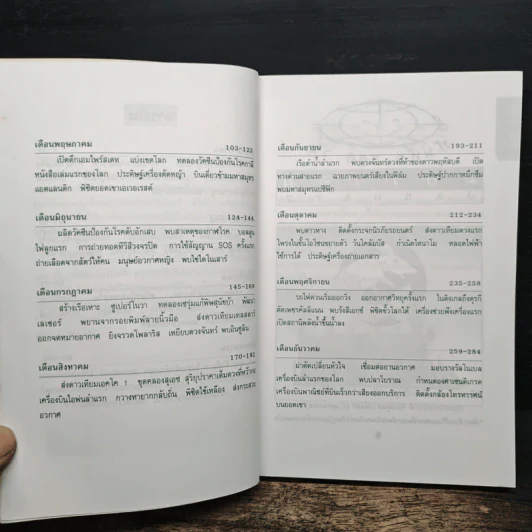 เดือนพฤษภาคม
103-123
เปิดตึกเอมไพร์สเตท แบ่งเขตโลก ทดลองวัคซีนป้องกันโรคกามี
หนังสือเล่มแรกของโลก ประดิษฐ์เครื่องตัดหญ้า บินเดี่ยวข้ามมหาสมุทร
แอตแลนติก พิชิตยอดเขาเอเวอเรสต์
เดือนมิถุนายน
124-144
ผลิตวัคซีนป้องกันโรคตับอักเสบ พบสาเหตุของกาฬโรค บอลลูน
ไฟลูกแรก การถ่ายทอดทีวีสีวงจรปิด การใช้สัญญาณ SOS ครั้งแรก
ถ่ายเลือดจากสัตว์ให้คน มนุษย์อวกาศหญิง พบไซโดไนเสาร์
เดือนกรกฎาคม
145-169
สร้างเรือเหาะ ซูเปอร์โนวา ทดลองเซรุ่มแก้พิษสุนัขบ้า
เลเซอร์ พยานจากรอยพิมพ์ลายนิ้วมือ ส่งดาวเทียมเทลสตาร์
ออกจดหมายอากาศ ยิงจรวดโพลาริส เหยียบดวงจันทร์ พบอินซูลิน
เดือนสิงหาคม
ส่งดาวเทียมเอคโค 1 ขุดคลองสุเอซ สุริยุปราคาเต็มดวงที่หว้ากอ
เครื่องบินไอพ่นลำแรก กวางหายากกลับถิ่น พิชิตไข้เหลือง
อวกาศ
เดือนกันยายน
193-211
เรือดำน้ำลำแรก พบดวงจันทร์ดวงที่ห้าของดาวพฤหัสบดี เปิด
ทางด่วนสายแรก ฉายภาพยนตร์เสียงในฟิล์ม ประดิษฐ์ปากกาหมึกซึม
พบมหาสมุทรแปซิฟิก
เดือนตุลาคม
212-234
พบดาวหาง ติดตั้งกระจกนิรภัยรถยนต์ ส่งดาวเทียมดวงแรก
ไฟฟ้า
ใช้การได้ ประดิษฐ์เครื่องถ่ายเอกสาร
เดือนพฤศจิกายน
235-258
รถไฟด่วนเริ่มออกวิ่ง ออกอากาศวิทยุครั้งแรก
พบรังสีเอกซ์ พิชิตขั้วโลกใต้
เปิดสถานีพลังน้ำขึ้นน้ำลง
เดือนธันวาคม
259-284
ผ่าตัดเปลี่ยนหัวใจ เชื่อมต่อยานอวกาศ มอบรางวัลโนเบล
เครื่องบินลำแรกของโลก พบปลาโบราณ กำหนดองศาเซนติเกรด
เครื่องบินพาณิชย์ที่บินเร็วกว่าเสียงออกบริการ ติดตั้งกล้องโทรทรรศน์
บนยอดเขา